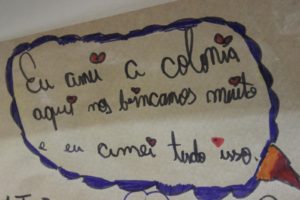 Eu ami a colonia
aqui nos bincamos muito
e eu amei tudo isso.